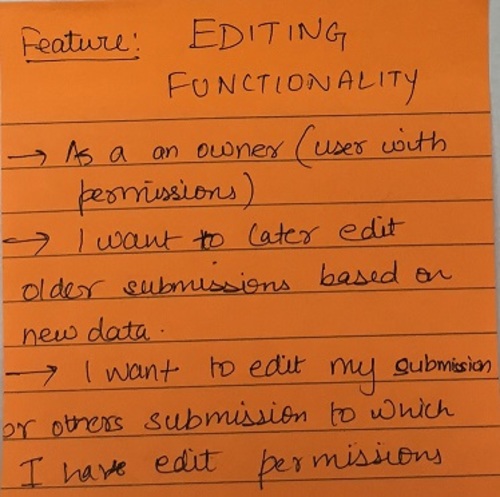 Feature: EDITING
FUNCTIONALITY
→ As a an owner (user with
permissions)
→ I want to later edit
older submissions based on
new data.
→ I want to edit my submission
or others submission to which
I have edit permissions